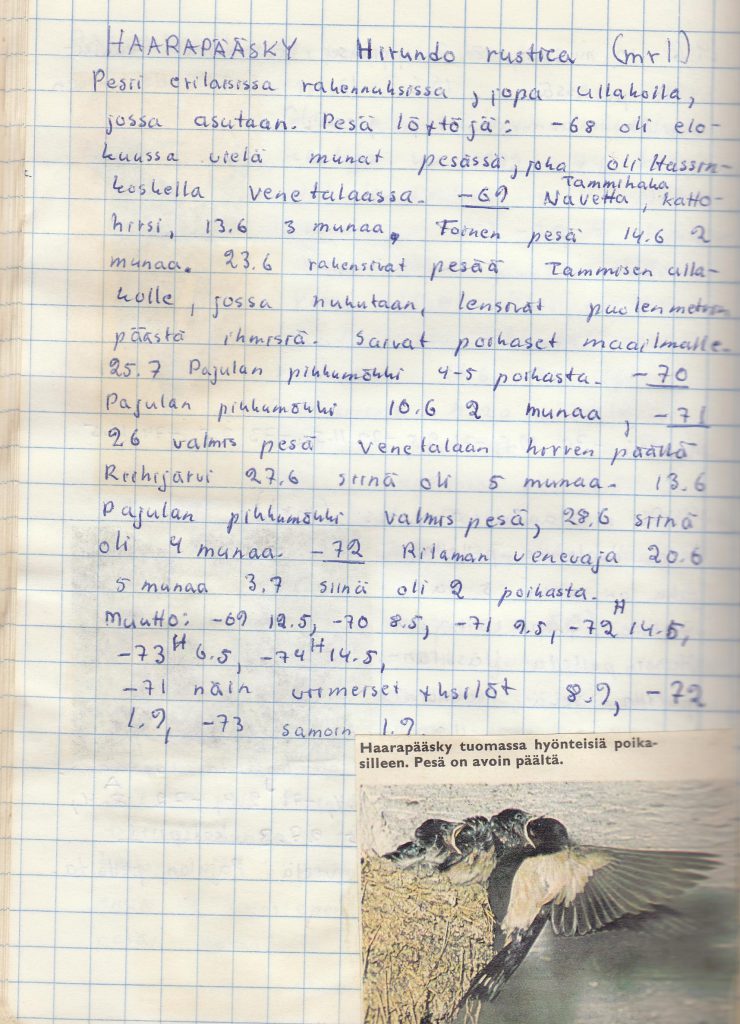 HAARAPÄÄSKY Hirundo rustica (mrl)
Pesii erilaisissa rakennuksissa, jopa ullakolla,
jossa asutaan. Pesä löytöjä: -68 oli elo-
kuussa vielä munat pesässä, joka oli Hassin-
koskella venetalaassa. -69 Tammihaka Navetta, katto-
hirsi, 13.6 3 munaa, Toinen pesä 14.6 2
munaa. 23.6 rakensivat pesää Tammisen ulla-
kolle, jossa nukutaan, lensivät puolenmetrin
päästä ihmisiä. Saivat poikaset maailmalle.
25.7 Pajulan pikkumökki 4-5 poikasta. -70
Pajulan pikkumökki 10.6 2 munaa, -71
26 valmis pesä venetalaan hirren päällä
Riihijärvi 27.6 siinä oli 5 munaa. 13.6
Pajulan pikkumökki valmis pesä, 28.6 siinä
oli 4 munaa. -72 Ritaman venevaja 20.6
5 munaa 3.7 siinä oli 2 poikasta.
Muutto: -69 12.5, -70 8.5, -71 9.5, -72 H 14.5,
-73 H 6.5, -74 H 14.5,
-71 näin viimeiset yksilöt 8.9, -72
1.9, -73 samoin 1.9
Haarapääsky tuomassa hyönteisiä poika-
silleen. Pesä on avoin päältä.